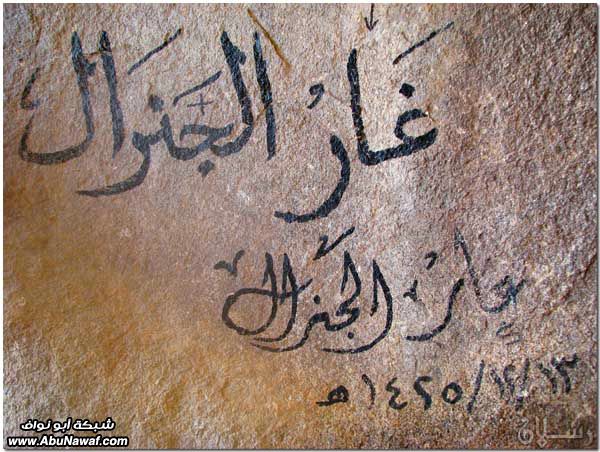 غَارُ الجَنوَال
غار الجنرال
١٣/١٢/١٤٢٥ هـ
شبكة أبو نواف
www.AbuNawaf.com